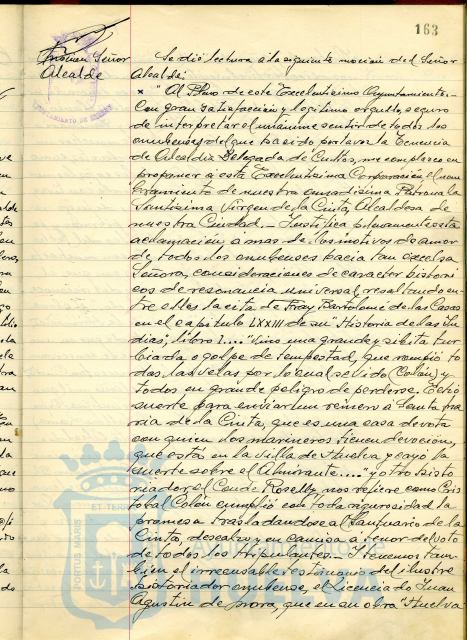 163
Mocion Señor
Alcalde
Se dió lectura á la siguiente mocion del Señor
Alcalde:
"Al Pleno de este Excelentísimo Ayuntamiento.-
Con gran satisfaccion y legítimo orgullo, seguro
de interpretar el unánime sentir de todos los
onubenses, del que ha sido portavoz la Tenencia
de Alcaldía Delegada de Cultos, me complazco en
proponer a esta Excelentísima Corporacion el nom
bramiento de nuestra amadísima Patrona la
Santísima Virgen de la Cinta, Alcaldesa de
nuestra Ciudad.- Justifica plenamente esta
aclamacion, a mas de los motivos de amor
de todos los onubenses hacia tan excelsa
Señora, consideraciones de caracter históri
cos de resonancia universal, resaltando en
tre ellos la cita de Fray Bartolomé de las Casas
en el capítulo LXXIII de su "Historia de las In
dias", libro I...." Vino una grande y súbita tur
biada, o golpe de tempestad, que rompió to
das las velas por lo cual se vido (Colón) y
todos en grande peligro de perderse. Echó
suerte para enviar un romero a Santa Ma
ría de la Cinta, que es una casa devota
con quien los marineros tienen devoción,
que está en la villa de Huelva y cayó la
suerte sobre el Almirante....." y otro histo
riador el Conde Roselly, nos refiere como Cris
tobal Colón cumplió con toda rigurosidad la
promesa trasladandose al Santuario de la
Cinta, descalzo y en camisa a tenor del voto
de todos los tripulantes.- Tenemos tam
bien el irrecusable testimonio del ilustre
historiador onubense, el Licenciado Juan
Agustín de Mora, que en su obra "Huelva
PORTUS MARIS ET TERRAE
HUELVA